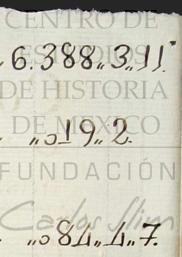 CENTRO DE
6.388„3„11.
DE HISTORIA
DE MÉXICO
„019„2.
FUNDACIÓN
Carlos Slim
„084„4„7.